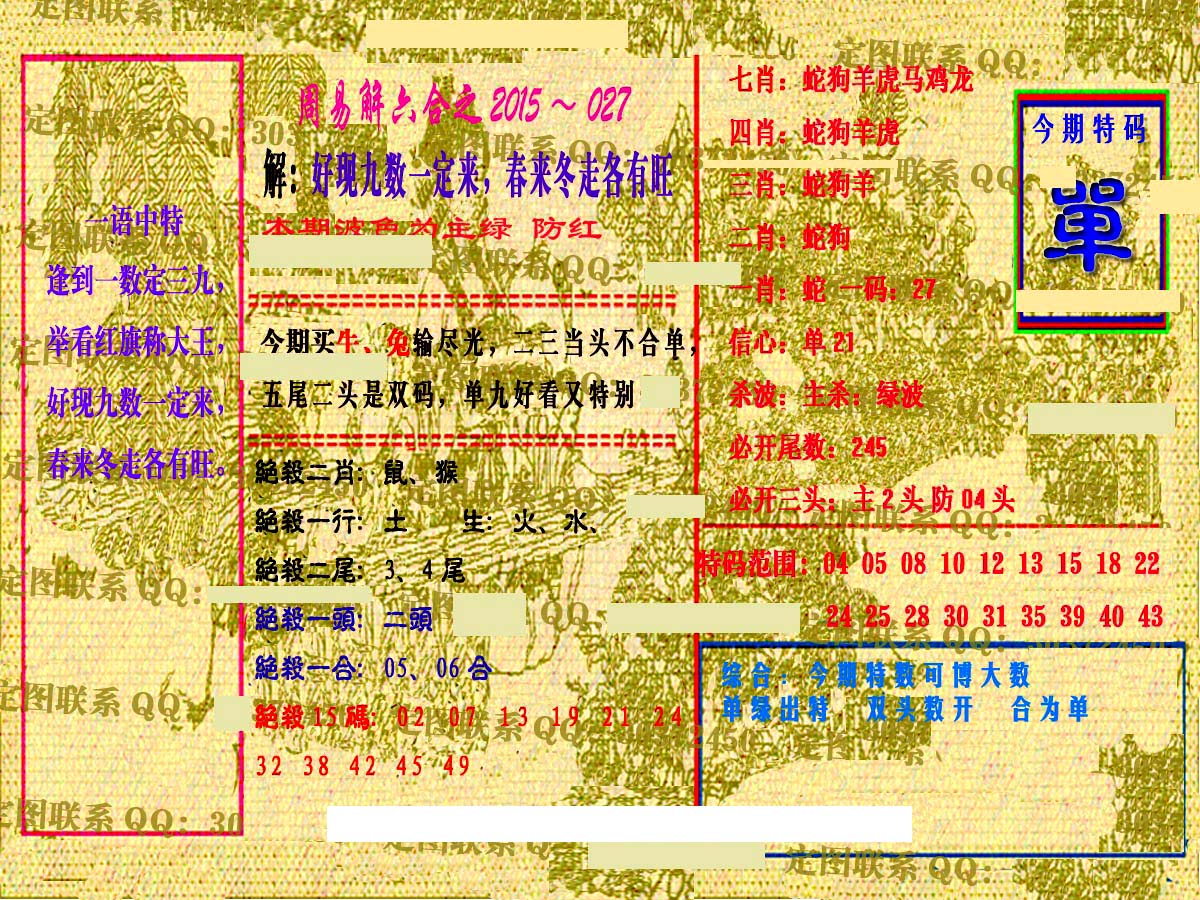 周易解六合之 2015～027
解：好现九数一定来，春来冬走各有旺
本期波色为主绿 防红
一语中特
逢到一数定三九，
举看红旗称大王，
好现九数一定来，
春来冬走各有旺。
今期买牛、兔输尽光，二三当头不合单，
五尾二头是双码，单九好看又特别
絕殺二肖：鼠、猴
絕殺一行：土 生：火、水、
絕殺二尾：3、4 尾
絕殺一頭：二頭
絕殺一合：05、06 合
絕殺 15 碼：02 07 13 19 21 24
32 38 42 45 49
七肖：蛇狗羊虎马鸡龙
四肖：蛇狗羊虎
三肖：蛇狗羊
二肖：蛇狗
一肖：蛇 一码：27
信心：单 21
杀波：主杀：绿波
必开尾数：245
必开三头：主 2 头 防 04 头
今期特码
單
特码范围：04 05 08 10 12 13 15 18 22
24 25 28 30 31 35 39 40 43
综合：今期特数可博大数
单绿出特， 双头数开 合为单
定图联系 QQ：